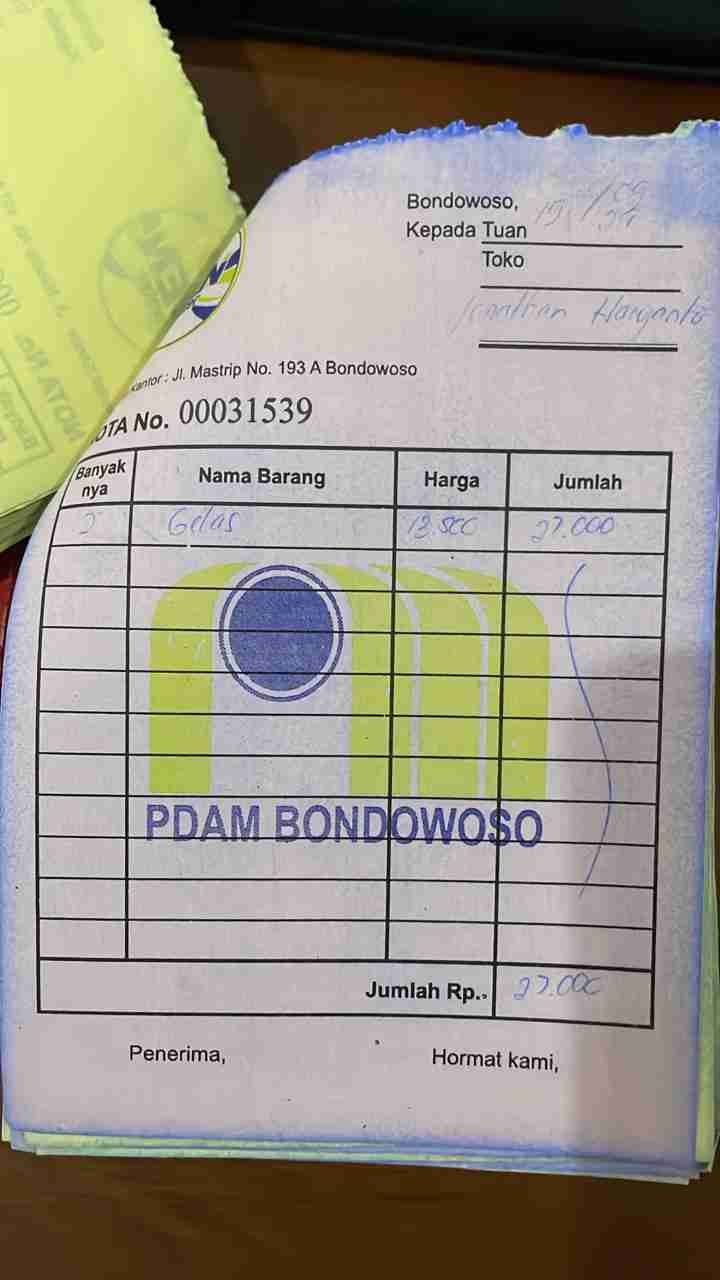 Bondowoso, 19/09
Kepada Tuan 24
Toko
Jonathan Haryanto
Kantor : Jl. Mastrip No. 193 A Bondowoso
NOTA No. 00031539
Banyak nya Nama Barang Harga Jumlah
2 Gelas 13.500 27.000
PDAM BONDOWOSO
Jumlah Rp. 27.000
Penerima, Hormat kami,